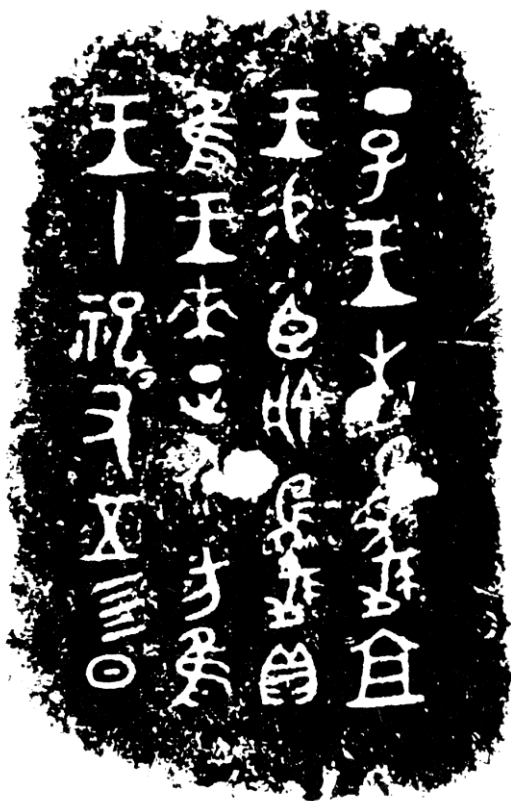 丁巳王省夔且
王易小臣俞夔貝
隹王來正人方隹
王十祀又五彡日